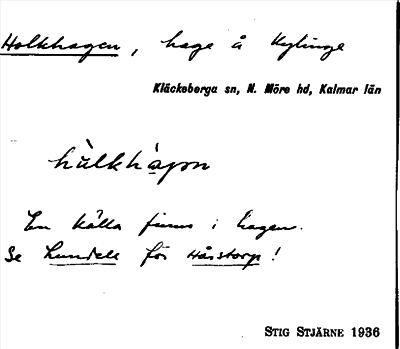 Holkhagen, hage å Kylinge
Kläckeberga sn, N. Möre hd, Kalmar län
hùlkhàgon
En källa finns i hagen.
Se Lundell för Håstorp!
STIG STJÄRNE 1936